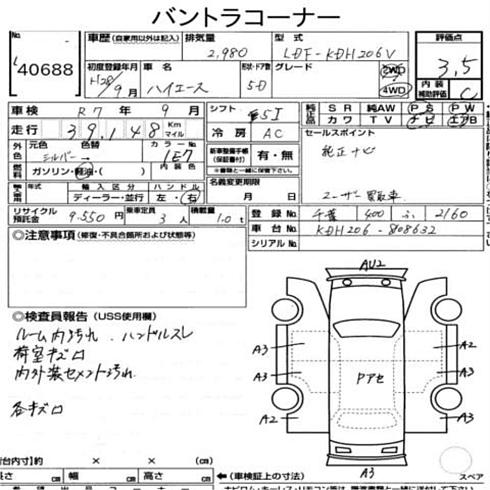 バントラコーナー
No.
40688
車歴 (自家用以外は記入)
排気量
2,980
型式
LDF-KDH206V
評価点
3.5
初度登録年月
H28/9月
車名
ハイエース
形状・ドア数
5D
グレード
2WD
4WD
内装
補助評価
C
車検 R7年9月
シフト
5I
純正品
SR 純AW PS PW
カワ TV ナビ エアB
走行 39,148 Km マイル
冷房
AC
セールスポイント
純正ナビ
ユーザー買取車
外色
元色
シルバー→
色替
カラーNo.
1E7
燃料
ガソリン・軽油・( )
内装色
新車整備手帳
(保証書付)
有・無
※書類と一緒に保管下さい。
輸入車
年式
輸入区分
ディーラー・並行
ハンドル
左・右
名義変更期限
月 日
リサイクル
預託金
9,550円
乗車定員
3人
積載量
1.0t
登録No.
千葉 400 ふ 2160
車台No.
KDH206-8108632
シリアルNo.
◎注意事項 (修復・不具合箇所および状態等)
◎検査員報告 (USS使用欄)
ルーム内汚れ ハンドルスレ
荷室キズロ
内外装セメント汚れ
各キズロ
AU2
A3
A3
A2
A2
A3
A3
A3
Pアセ
荷台内寸)約 × × (cm)
長さ cm 幅 cm 高さ cm
◎(車検証上の寸法)
スペア